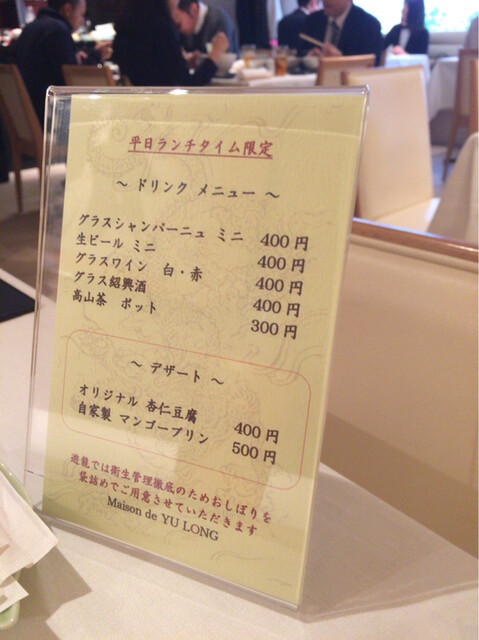 平日ランチタイム限定
～ ドリンク メニュー ～
グラスシャンパーニュ ミニ 400 円
生ビール ミニ 400 円
グラスワイン 白・赤 400 円
グラス紹興酒 400 円
高山茶 ポット 300 円
～ デザート ～
オリジナル 杏仁豆腐 400 円
自家製 マンゴープリン 500 円
遊龍では衛生管理徹底のためおしぼりを
袋詰めでご用意させていただきます
Maison de YU LONG